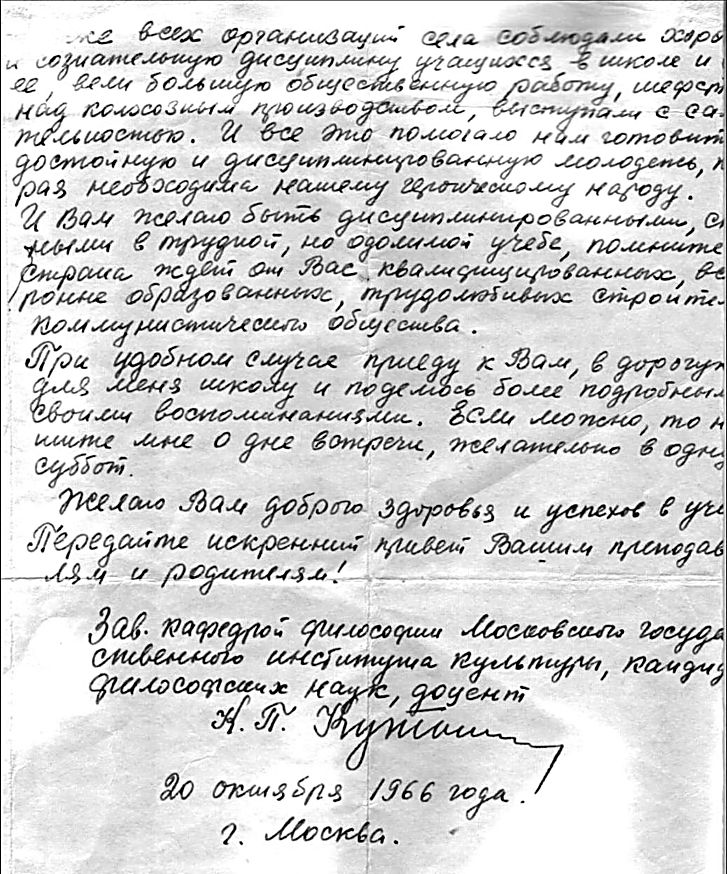 же всех организаций села соблюдали хоро
и сознательную дисциплину учащихся в школе и
ее, вели большую общественную работу, шефст
над колхозным производством, выступали с са-
тельностью. И все это помогало нам готовить
достойную и дисциплинированную молодежь, к
рая необходима нашему героическому народу.
И Вам желаю быть дисциплинированными, с
ными в трудной, но одолимой учебе, помните
страна ждет от Вас квалифицированных, вс
ронне образованных, трудолюбивых строите
коммунистического общества.
При удобном случае приеду к Вам, в дорогую
для меня школу и поделюсь более подробным
своими воспоминаниями. Если можно, то н
шите мне о дне встречи, желательно в одну
суббот.
Желаю Вам доброго здоровья и успехов в уче
Передайте искренний привет Вашим преподав
лям и родителям!
Зав. кафедрой философии Московского госуда
ственного института культуры, кандид
философских наук, доцент
К. П.
20 октября 1966 года.
г. Москва.